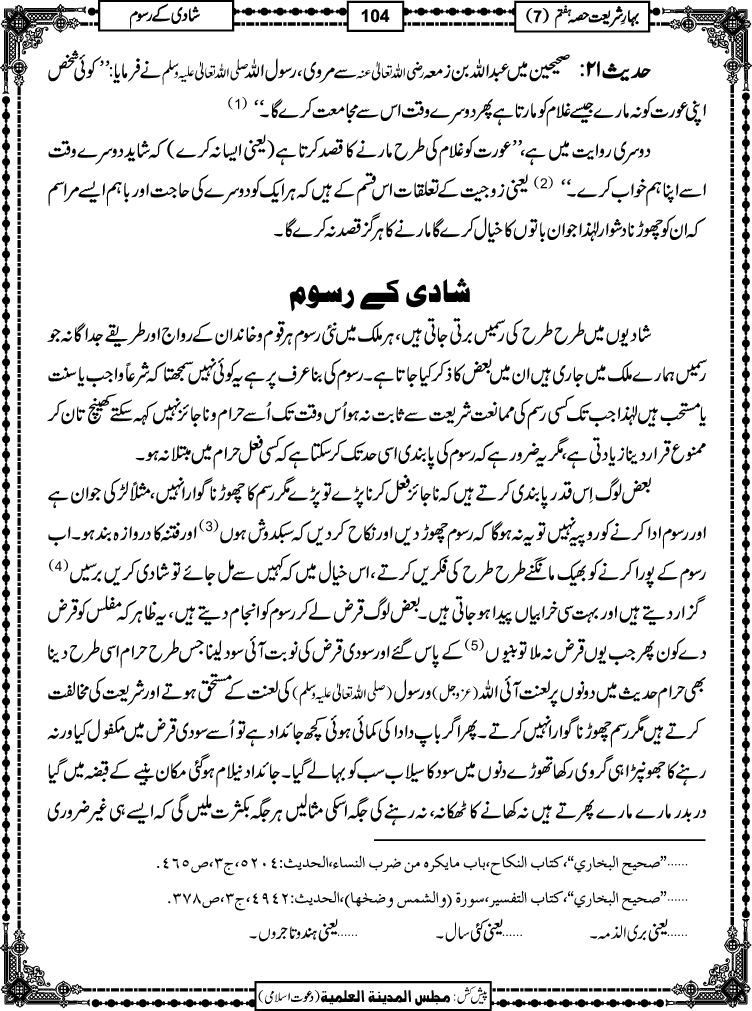 بہارِ شریعت حصہ ہفتم (7)
104
شادی کے رسوم
حدیث ۲۱: صحیحین میں عبداللہ بن زمعہ رضی اللہ تعالیٰ عنہ سے مروی، رسول اللہ صلی اللہ تعالیٰ علیہ وسلم نے فرمایا: ’’کوئی شخص
اپنی عورت کو نہ مارے جیسے غلام کو مارتا ہے پھر دوسرے وقت اس سے مجامعت کرے گا۔‘‘ (1)
دوسری روایت میں ہے، ’’عورت کو غلام کی طرح مارنے کا قصد کرتا ہے (یعنی ایسا نہ کرے) کہ شاید دوسرے وقت
اسے اپنا ہم خواب کرے۔‘‘ (2) یعنی زوجیت کے تعلقات اس قسم کے ہیں کہ ہر ایک کو دوسرے کی حاجت اور باہم ایسے مراسم
کہ ان کو چھوڑنا دشوار لہٰذا جو ان باتوں کا خیال کرے گا مارنے کا ہرگز قصد نہ کرے گا۔
شادی کے رسوم
شادیوں میں طرح طرح کی رسمیں برتی جاتی ہیں، ہر ملک میں نئی رسوم ہر قوم و خاندان کے رواج اور طریقے جداگانہ جو
رسمیں ہمارے ملک میں جاری ہیں ان میں بعض کا ذکر کیا جاتا ہے۔ رسوم کی بنا عرف پر ہے یہ کوئی نہیں سمجھتا کہ شرعاً واجب یا سنت
یا مستحب ہیں لہٰذا جب تک کسی رسم کی ممانعت شریعت سے ثابت نہ ہو اُس وقت تک اُسے حرام و ناجائز نہیں کہہ سکتے کھینچ تان کر
ممنوع قرار دینا زیادتی ہے، مگر یہ ضرور ہے کہ رسوم کی پابندی اسی حد تک کر سکتا ہے کہ کسی فعل حرام میں مبتلا نہ ہو۔
بعض لوگ اِس قدر پابندی کرتے ہیں کہ ناجائز فعل کرنا پڑے تو پڑے مگر رسم کا چھوڑنا گوارا نہیں، مثلاً لڑکی جوان ہے
اور رسوم ادا کرنے کو روپیہ نہیں تو یہ نہ ہوگا کہ رسوم چھوڑ دیں اور نکاح کر دیں کہ سبکدوش ہوں (3) اور فتنہ کا دروازہ بند ہو۔ اب
رسوم کے پورا کرنے کو بھیک مانگنے طرح طرح کی فکریں کرتے، اس خیال میں کہ کہیں سے مل جائے تو شادی کریں برسیں (4)
گزار دیتے ہیں اور بہت سی خرابیاں پیدا ہو جاتی ہیں۔ بعض لوگ قرض لے کر رسوم کو انجام دیتے ہیں، یہ ظاہر کہ مفلس کو قرض
دے کون پھر جب یوں قرض نہ ملا تو بنیوں (5) کے پاس گئے اور سودی قرض کی نوبت آئی سود لینا جس طرح حرام اسی طرح دینا
بھی حرام حدیث میں دونوں پر لعنت آئی اللہ (عزوجل) و رسول (صلی اللہ تعالیٰ علیہ وسلم) کی لعنت کے مستحق ہوتے اور شریعت کی مخالفت
کرتے ہیں مگر رسم چھوڑنا گوارا نہیں کرتے۔ پھر اگر باپ دادا کی کمائی ہوئی کچھ جائداد ہے تو اُسے سودی قرض میں مکفول کیا ورنہ
رہنے کا جھونپڑا ہی گروی رکھا تھوڑے دنوں میں سود کا سیلاب سب کو بہا لے گیا۔ جائداد نیلام ہوگئی مکان بنیے کے قبضہ میں گیا
در بدر مارے مارے پھرتے ہیں نہ کھانے کا ٹھکانہ، نہ رہنے کی جگہ اسکی مثالیں ہر جگہ بکثرت ملیں گی کہ ایسے ہی غیر ضروری
......”صحیح البخاري“، کتاب النکاح، باب مایکره من ضرب النساء، الحدیث: ٥٢٠٤، ج٣، ص٤٦٥.
......”صحیح البخاري“، کتاب التفسیر، سورة (والشمس وضحٰها)، الحدیث: ٤٩٤٢، ج٣، ص٣٧٨.
......یعنی بری الذمہ۔ ......یعنی کئی سال۔ ......یعنی ہندو تاجروں۔
پیش کش: مجلس المدینة العلمیة (دعوت اسلامی)